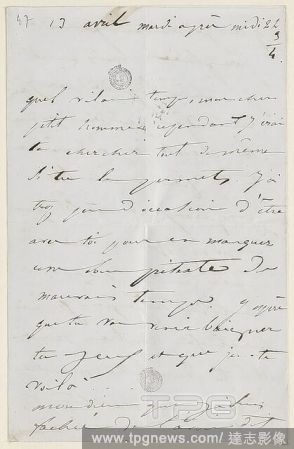 47 13 avril mardi après midi 2 h
3/4
quel vilain temps, mon cher
petit homme, cependant j'irai
te chercher tout de même
si tu le permets. J'ai
trop peu d'occasion d'être
avec toi pour en manquer
une sous prétexte de
mauvais temps. J'espère
que tu vas venir baigner
tes yeux et que je te
voilà
mon dieu
fâché
TPG
www.tpgnews.com / 達志影像